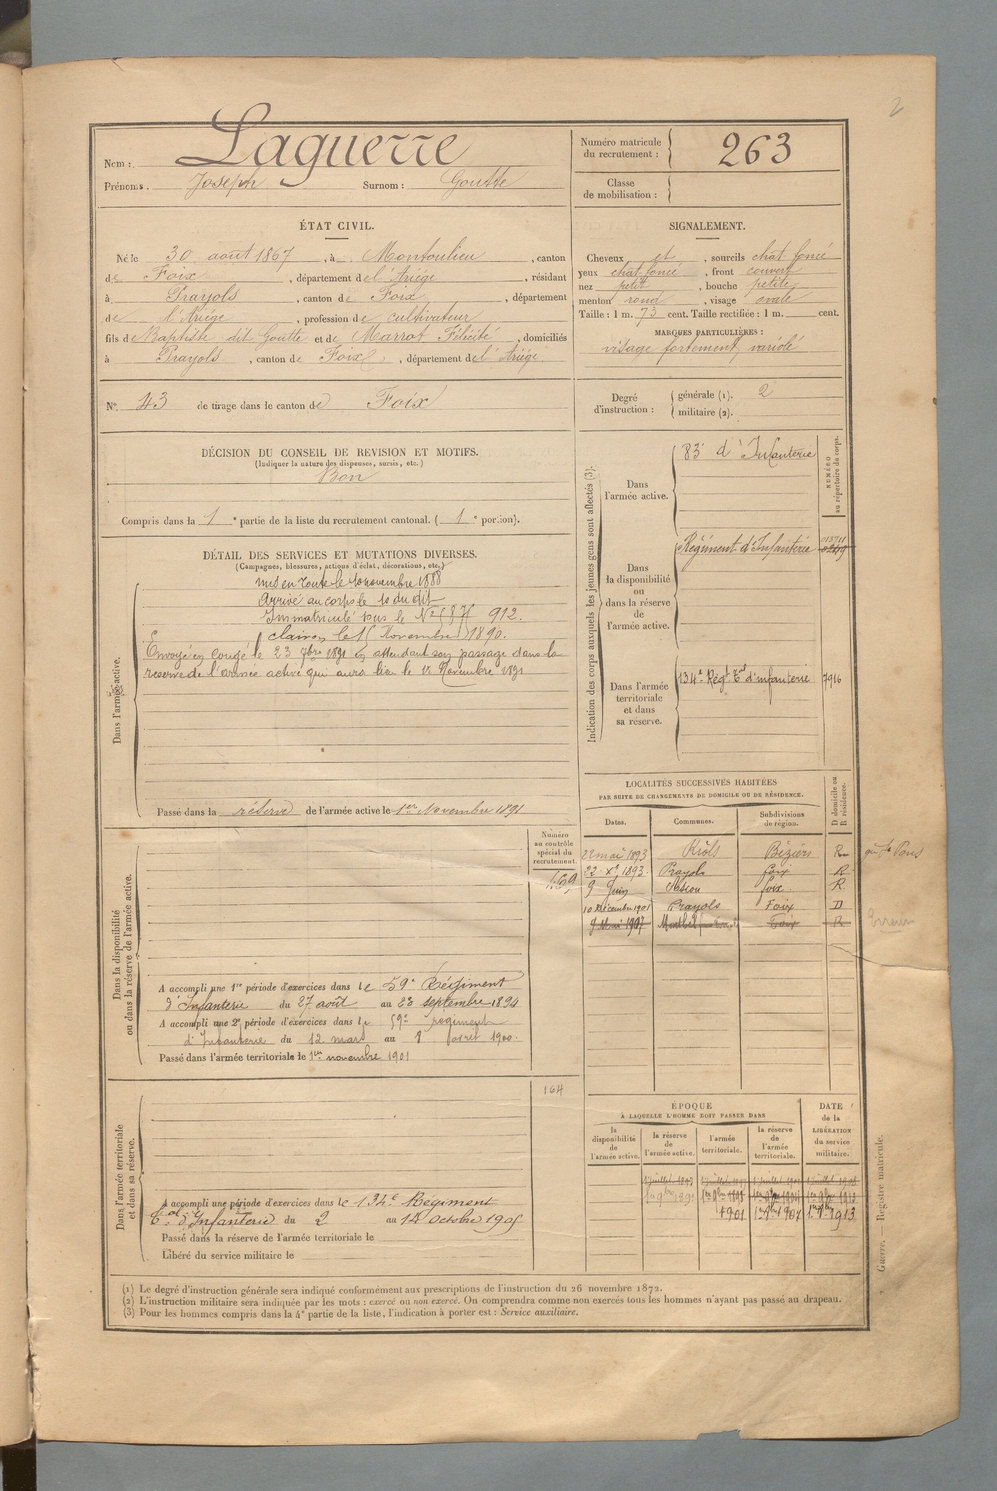 2
Nom : Laguerre
Prénoms . Joseph Surnom : Goutte
Numéro matricule du recrutement : 263
Classe de mobilisation :
ÉTAT CIVIL.
Né le 30 août 1867 , à Montoulieu , canton
de Foix , département de l'Ariège , résidant
à Prayols , canton de Foix , département
de l'Ariège , profession de cultivateur
fils de Baptiste dit Goutte et de Marrot Félicité , domiciliés
à Prayols , canton de Foix , département de l'Ariège
SIGNALEMENT.
Cheveux et , sourcils chat foncé
yeux chat foncé , front couvert
nez petit , bouche petite
menton rond , visage ovale
Taille : 1 m. 73 cent. Taille rectifiée : 1 m. cent.
MARQUES PARTICULIÈRES :
visage fortement variolé
N° 43 de tirage dans le canton de Foix
Degré d'instruction :
générale (1). 2
militaire (2).
DÉCISION DU CONSEIL DE REVISION ET MOTIFS.
(Indiquer la nature des dispenses, sursis, etc.)
Bon
Compris dans la 1e partie de la liste du recrutement cantonal. ( 1e portion).
DÉTAIL DES SERVICES ET MUTATIONS DIVERSES.
(Campagnes, blessures, actions d'éclat, décorations, etc.)
Dans l'armée active.
mis en route le 10 novembre 1888
Arrivé au corps le 10 du dit
Immatriculé sous le N° 912.
clairon le 15 Novembre 1890.
Envoyé en congé le 23 7bre 1891 en attendant son passage dans la
réserve de l'armée active qui aura lieu le Novembre 1891
Passé dans la réserve de l'armée active le 1er Novembre 1891
Indication des corps auxquels les jeunes gens sont affectés (3).
NUMÉRO au répertoire du corps.
Dans l'armée active.
83e d'Infanterie
Dans la disponibilité ou dans la réserve de l'armée active.
Régiment d'Infanterie
Dans l'armée territoriale et dans sa réserve.
134e Régt Tal d'infanterie 7916
LOCALITÉS SUCCESSIVES HABITÉES
PAR SUITE DE CHANGEMENTS DE DOMICILE OU DE RÉSIDENCE.
Dates. Communes. Subdivisions de région. D domicile ou R résidence.
22 mai 1893 Béziers R
22 Xe 1893 Prayols foix R
9 Juin foix R
10 Décembre 1901 Prayols Foix D
9 Mai 1907 Foix R
Erreur
Dans la disponibilité ou dans la réserve de l'armée active.
Numéro au contrôle spécial du recrutement.
169
A accompli une 1re période d'exercices dans le 59e Régiment
d'Infanterie du 27 août au 23 septembre 1894
A accompli une 2e période d'exercices dans le 59e régiment
d'Infanterie du 12 mars au 8 avril 1900.
Passé dans l'armée territoriale le 1er novembre 1901
Dans l'armée territoriale et dans sa réserve.
164
A accompli une période d'exercices dans le 134e Régiment
Tal d'Infanterie du 2 au 14 Octobre 1905
Passé dans la réserve de l'armée territoriale le
Libéré du service militaire le
ÉPOQUE
À LAQUELLE L'HOMME DOIT PASSER DANS
la disponibilité de l'armée active.
la réserve de l'armée active.
l'armée territoriale.
la réserve de l'armée territoriale.
DATE de la LIBÉRATION du service militaire.
1901 1er 9bre 1907 1er 9bre 1913
Guerre. — Registre matricule.
(1) Le degré d'instruction générale sera indiqué conformément aux prescriptions de l'instruction du 26 novembre 1872.
(2) L'instruction militaire sera indiquée par les mots : exercé ou non exercé. On comprendra comme non exercés tous les hommes n'ayant pas passé au drapeau.
(3) Pour les hommes compris dans la 4e partie de la liste, l'indication à porter est : Service auxiliaire.